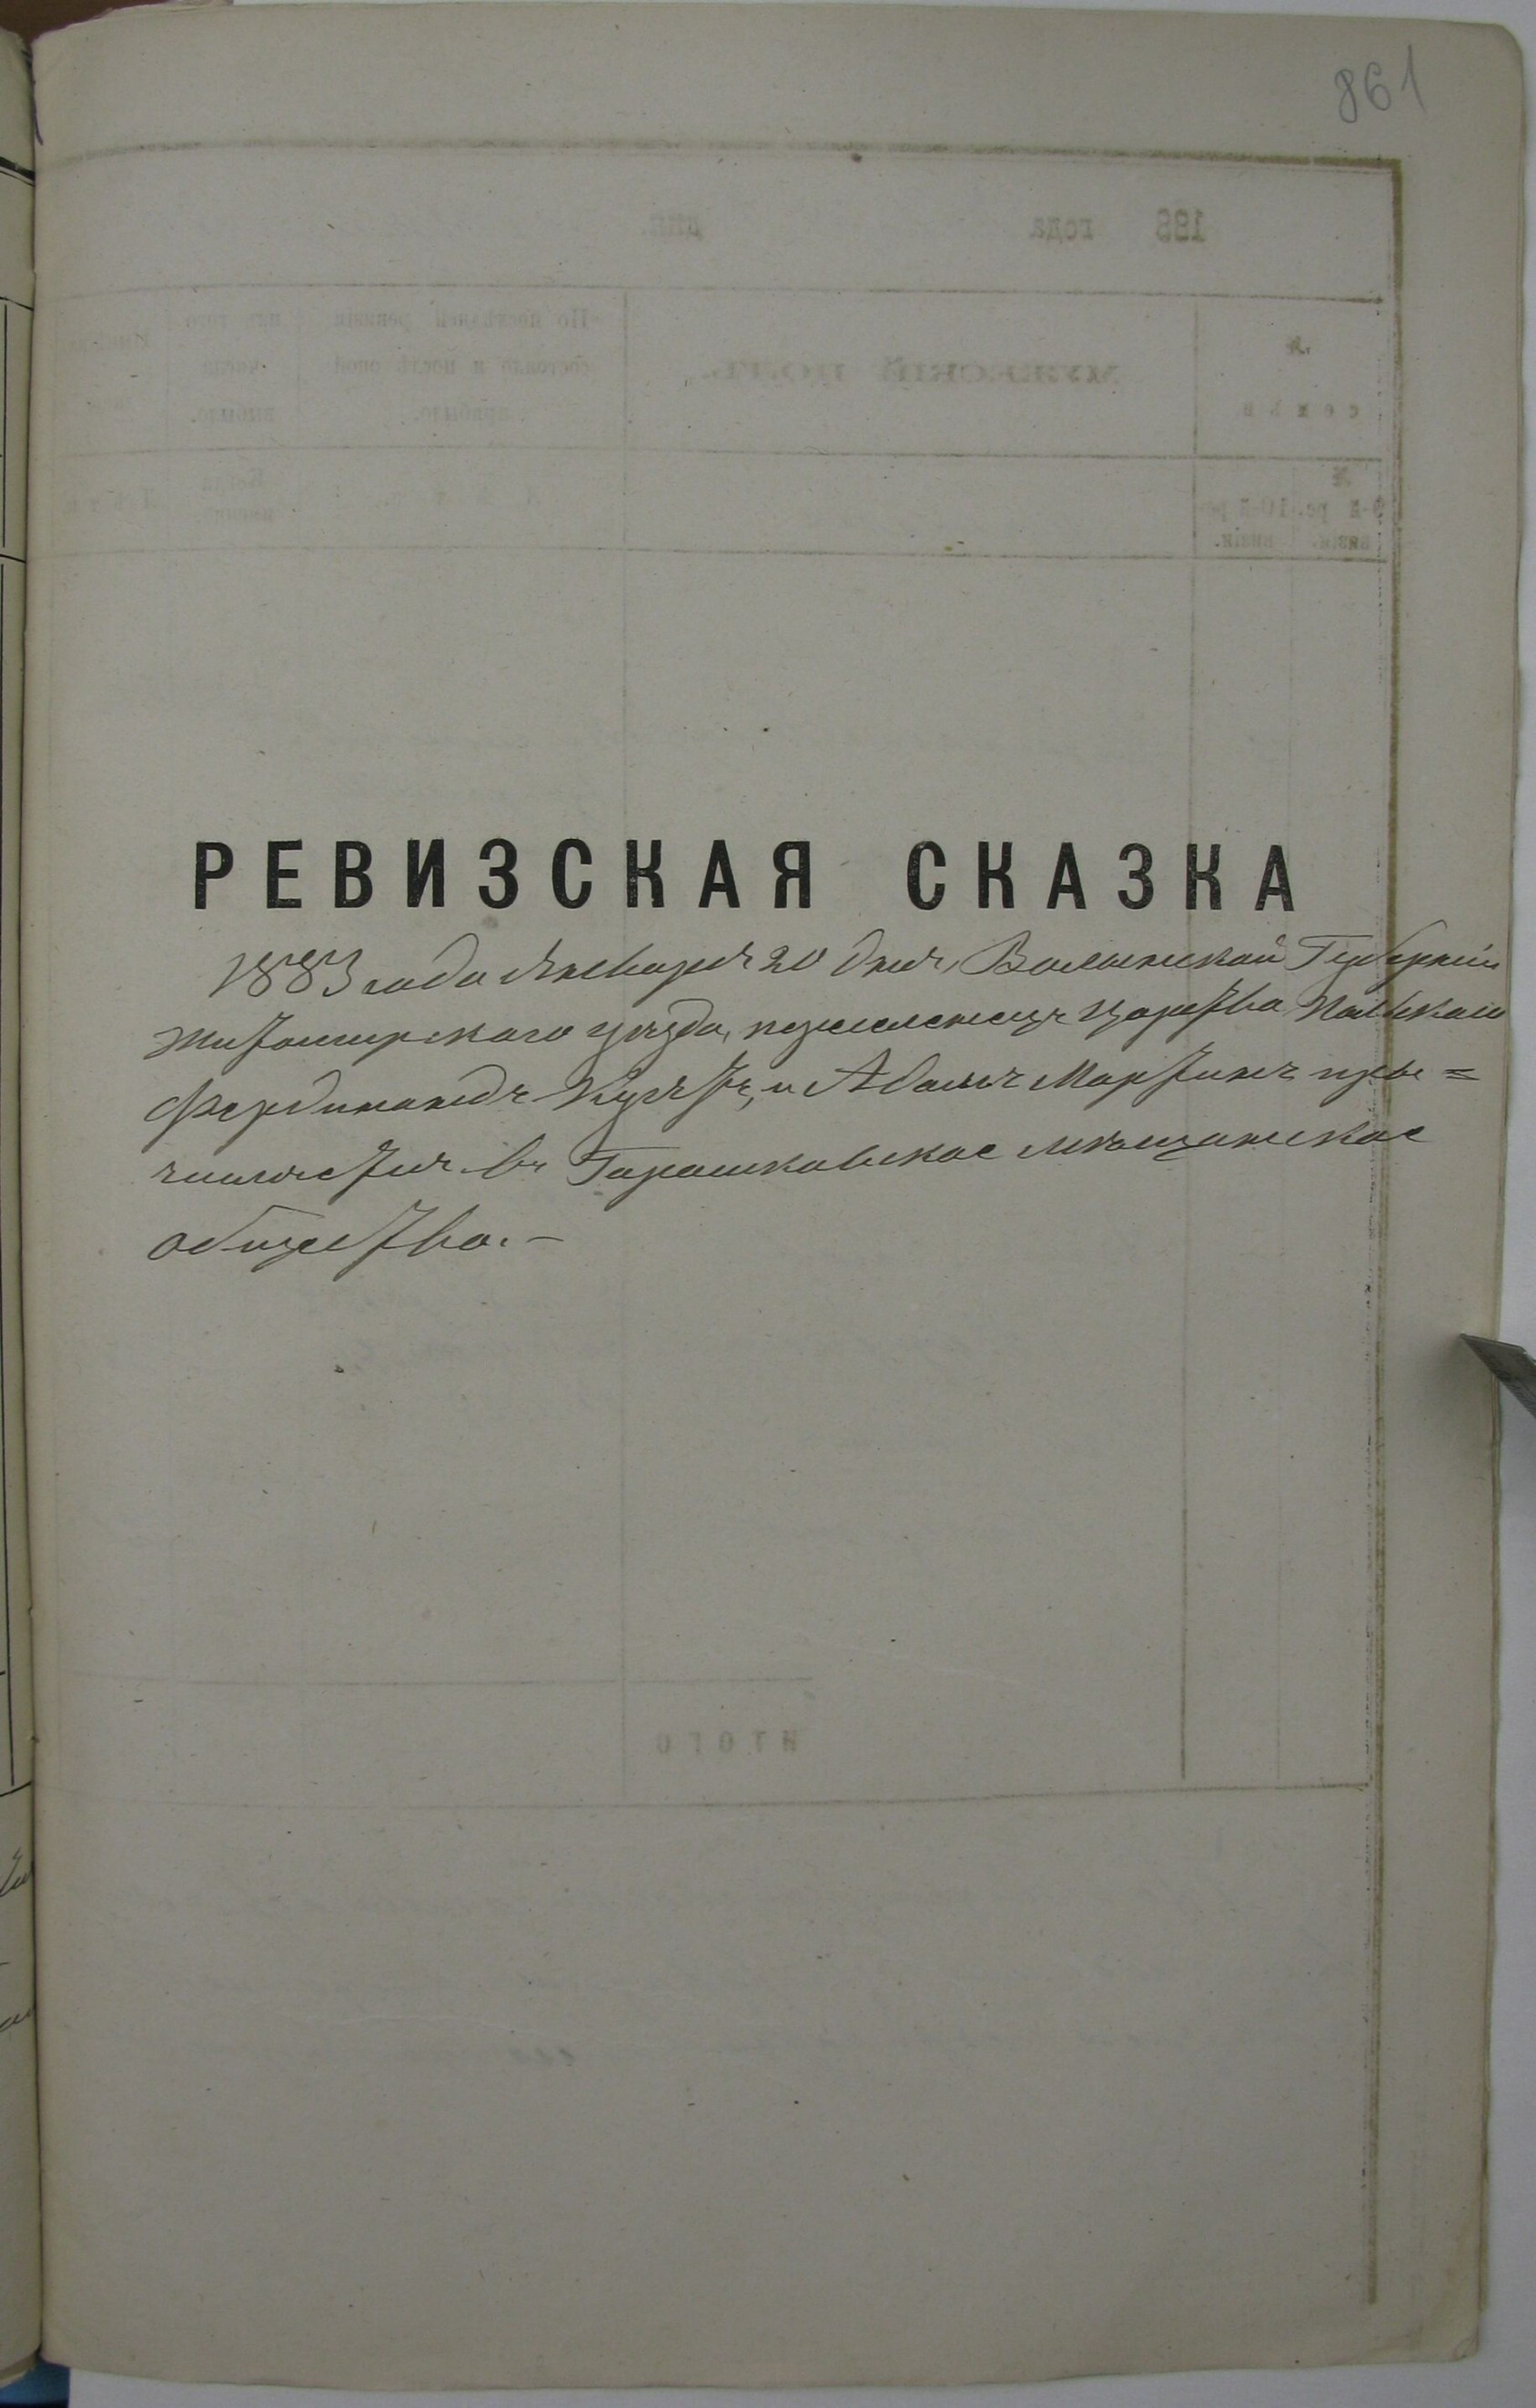 861
РЕВИЗСКАЯ СКАЗКА
1883 года Января 20 дня, Волынской Губерніи
Житомирскаго уѣзда, переселенецъ Царства Польскаго
Фердинандъ и Адамъ Мартинъ при=
числится въ Горошковское мѣщанское
общество. –